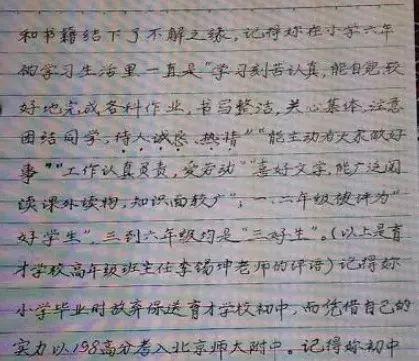 和书籍结下了不解之缘,记得妳在小学六年
的学习生活里一直是"学习刻苦认真,能自觉较
好地完成各科作业,书写整洁,关心集体,注意
团结同学,待人诚恳、热情""能主动为大家做好
事""工作认真负责,爱劳动""喜好文学,能广泛阅
读课外读物,知识面较广",一、二年级被评为"
好学生",三到六年级均是"三好生"。(以上是育
才学校高年级班主任李锡坤老师的评语)记得妳
小学毕业时放弃保送育才学校初中,而凭借自己的
实力以198高分考入北京师大附中。记得妳初中